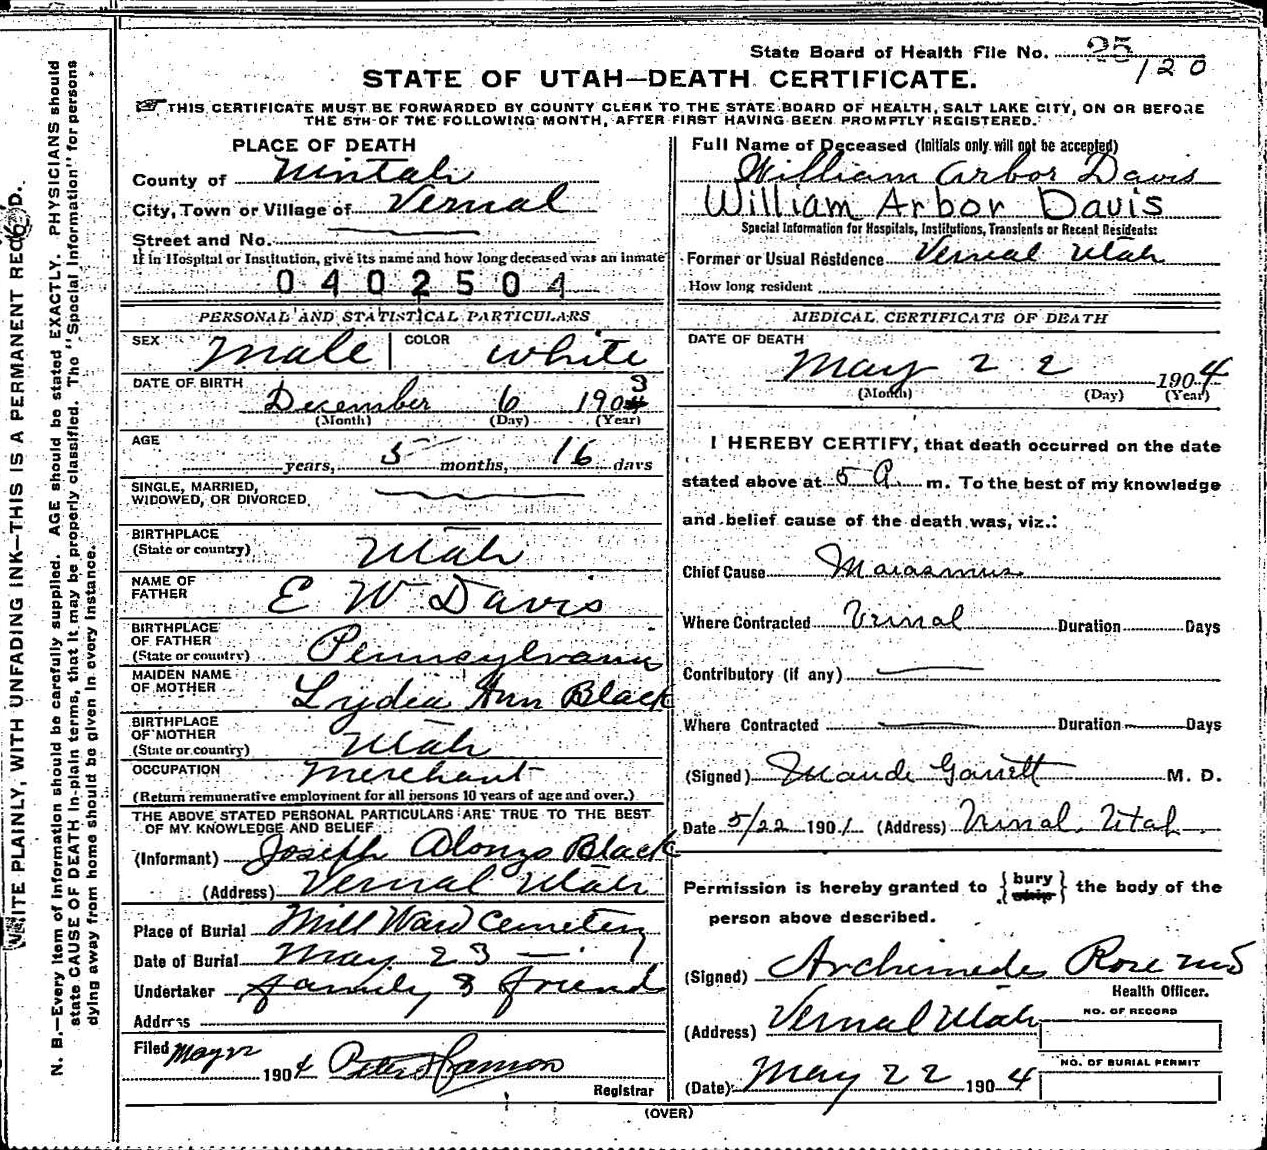 State Board of Health File No. 25
120
STATE OF UTAH—DEATH CERTIFICATE.
THIS CERTIFICATE MUST BE FORWARDED BY COUNTY CLERK TO THE STATE BOARD OF HEALTH, SALT LAKE CITY, ON OR BEFORE
THE 5TH OF THE FOLLOWING MONTH, AFTER FIRST HAVING BEEN PROMPTLY REGISTERED.
WRITE PLAINLY, WITH UNFADING INK—THIS IS A PERMANENT RECORD.
N. B.—Every item of information should be carefully supplied. AGE should be stated EXACTLY. PHYSICIANS should
state CAUSE OF DEATH in plain terms, that it may be properly classified. The "Special Information" for persons
dying away from home should be given in every instance.
PLACE OF DEATH
County of Uintah
City, Town or Village of Vernal
Street and No.
If in Hospital or Institution, give its name and how long deceased was an inmate
0402504
PERSONAL AND STATISTICAL PARTICULARS
SEX Male COLOR White
DATE OF BIRTH
December 6 1903
(Month) (Day) (Year)
AGE
years, 5 months, 16 days
SINGLE, MARRIED,
WIDOWED, OR DIVORCED
BIRTHPLACE
(State or country) Utah
NAME OF
FATHER E W Davis
BIRTHPLACE
OF FATHER
(State or country) Pennsylvania
MAIDEN NAME
OF MOTHER Lydia Ann Black
BIRTHPLACE
OF MOTHER
(State or country) Utah
OCCUPATION Merchant
(Return remunerative employment for all persons 10 years of age and over.)
THE ABOVE STATED PERSONAL PARTICULARS ARE TRUE TO THE BEST
OF MY KNOWLEDGE AND BELIEF
(Informant) Joseph Alonzo Black
(Address) Vernal Utah
Place of Burial Mill Ward Cemetery
Date of Burial May 23
Undertaker family & friends
Address
Filed May 22
1904 Peter Hanson
Registrar
Full Name of Deceased (Initials only will not be accepted)
William Arbor Davis
William Arbor Davis
Special Information for Hospitals, Institutions, Transients or Recent Residents:
Former or Usual Residence Vernal Utah
How long resident
MEDICAL CERTIFICATE OF DEATH
DATE OF DEATH
May 22 1904
(Month) (Day) (Year)
I HEREBY CERTIFY, that death occurred on the date
stated above at 5 A. m. To the best of my knowledge
and belief cause of the death was, viz.:
Chief Cause Marasmus
Where Contracted Vernal Duration Days
Contributory (if any)
Where Contracted Duration Days
(Signed) Maude Garrett M. D.
Date 5/22 1904 (Address) Vernal, Utah
Permission is hereby granted to {bury ship} the body of the
person above described.
(Signed) Archimedes Rose MD
Health Officer.
(Address) Vernal Utah
NO. OF RECORD
NO. OF BURIAL PERMIT
(Date) May 22 1904
(OVER)